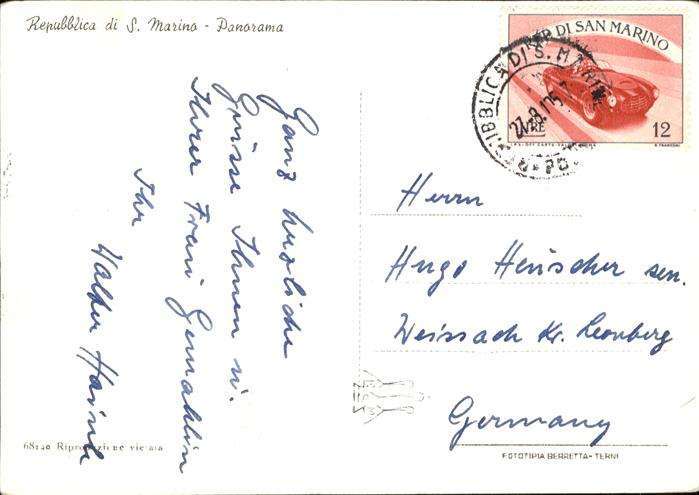 Repubblica di S. Marino - Panorama
REP. DI SAN MARINO
LIRE
12
Ganz herzliche
Grüsse Ihnen u.
Ihrer Frau Gemahlin
Ihr
Walter
Herrn
Hugo Henscher sen.
Weissach Kr. Leonberg
Germany
68140 Riproduzione vietata
FOTOTIPIA BERRETTA - TERNI